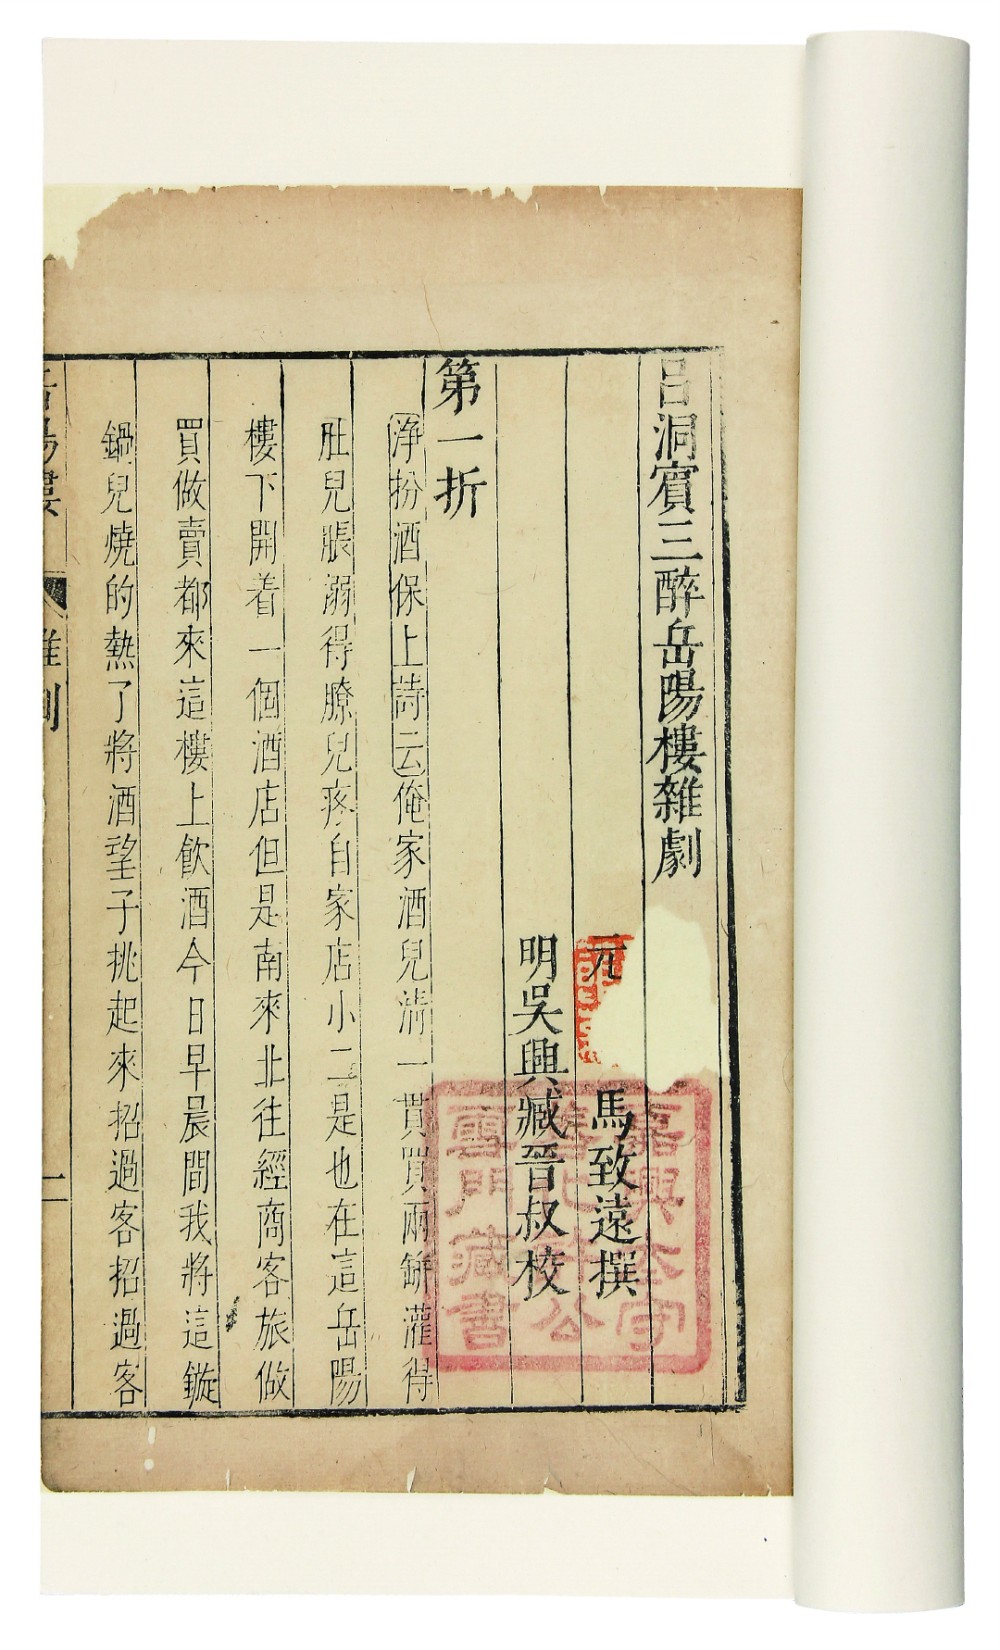 呂洞賓三醉岳陽樓雜劇
元 馬致遠撰
明吳興臧晉叔校
第一折
淨扮酒保上詩云俺家酒兒淸一貫買兩缾灌得
肚兒脹溺得膫兒疼自家店小二是也在這岳陽
樓下開着一個酒店但是南來北往經商客旅做
買做賣都來這樓上飮酒今日早晨間我將這鏇
鍋兒燒的熱了將酒望子挑起來招過客招過客
岳陽樓 雜劇 一
雲門藏書